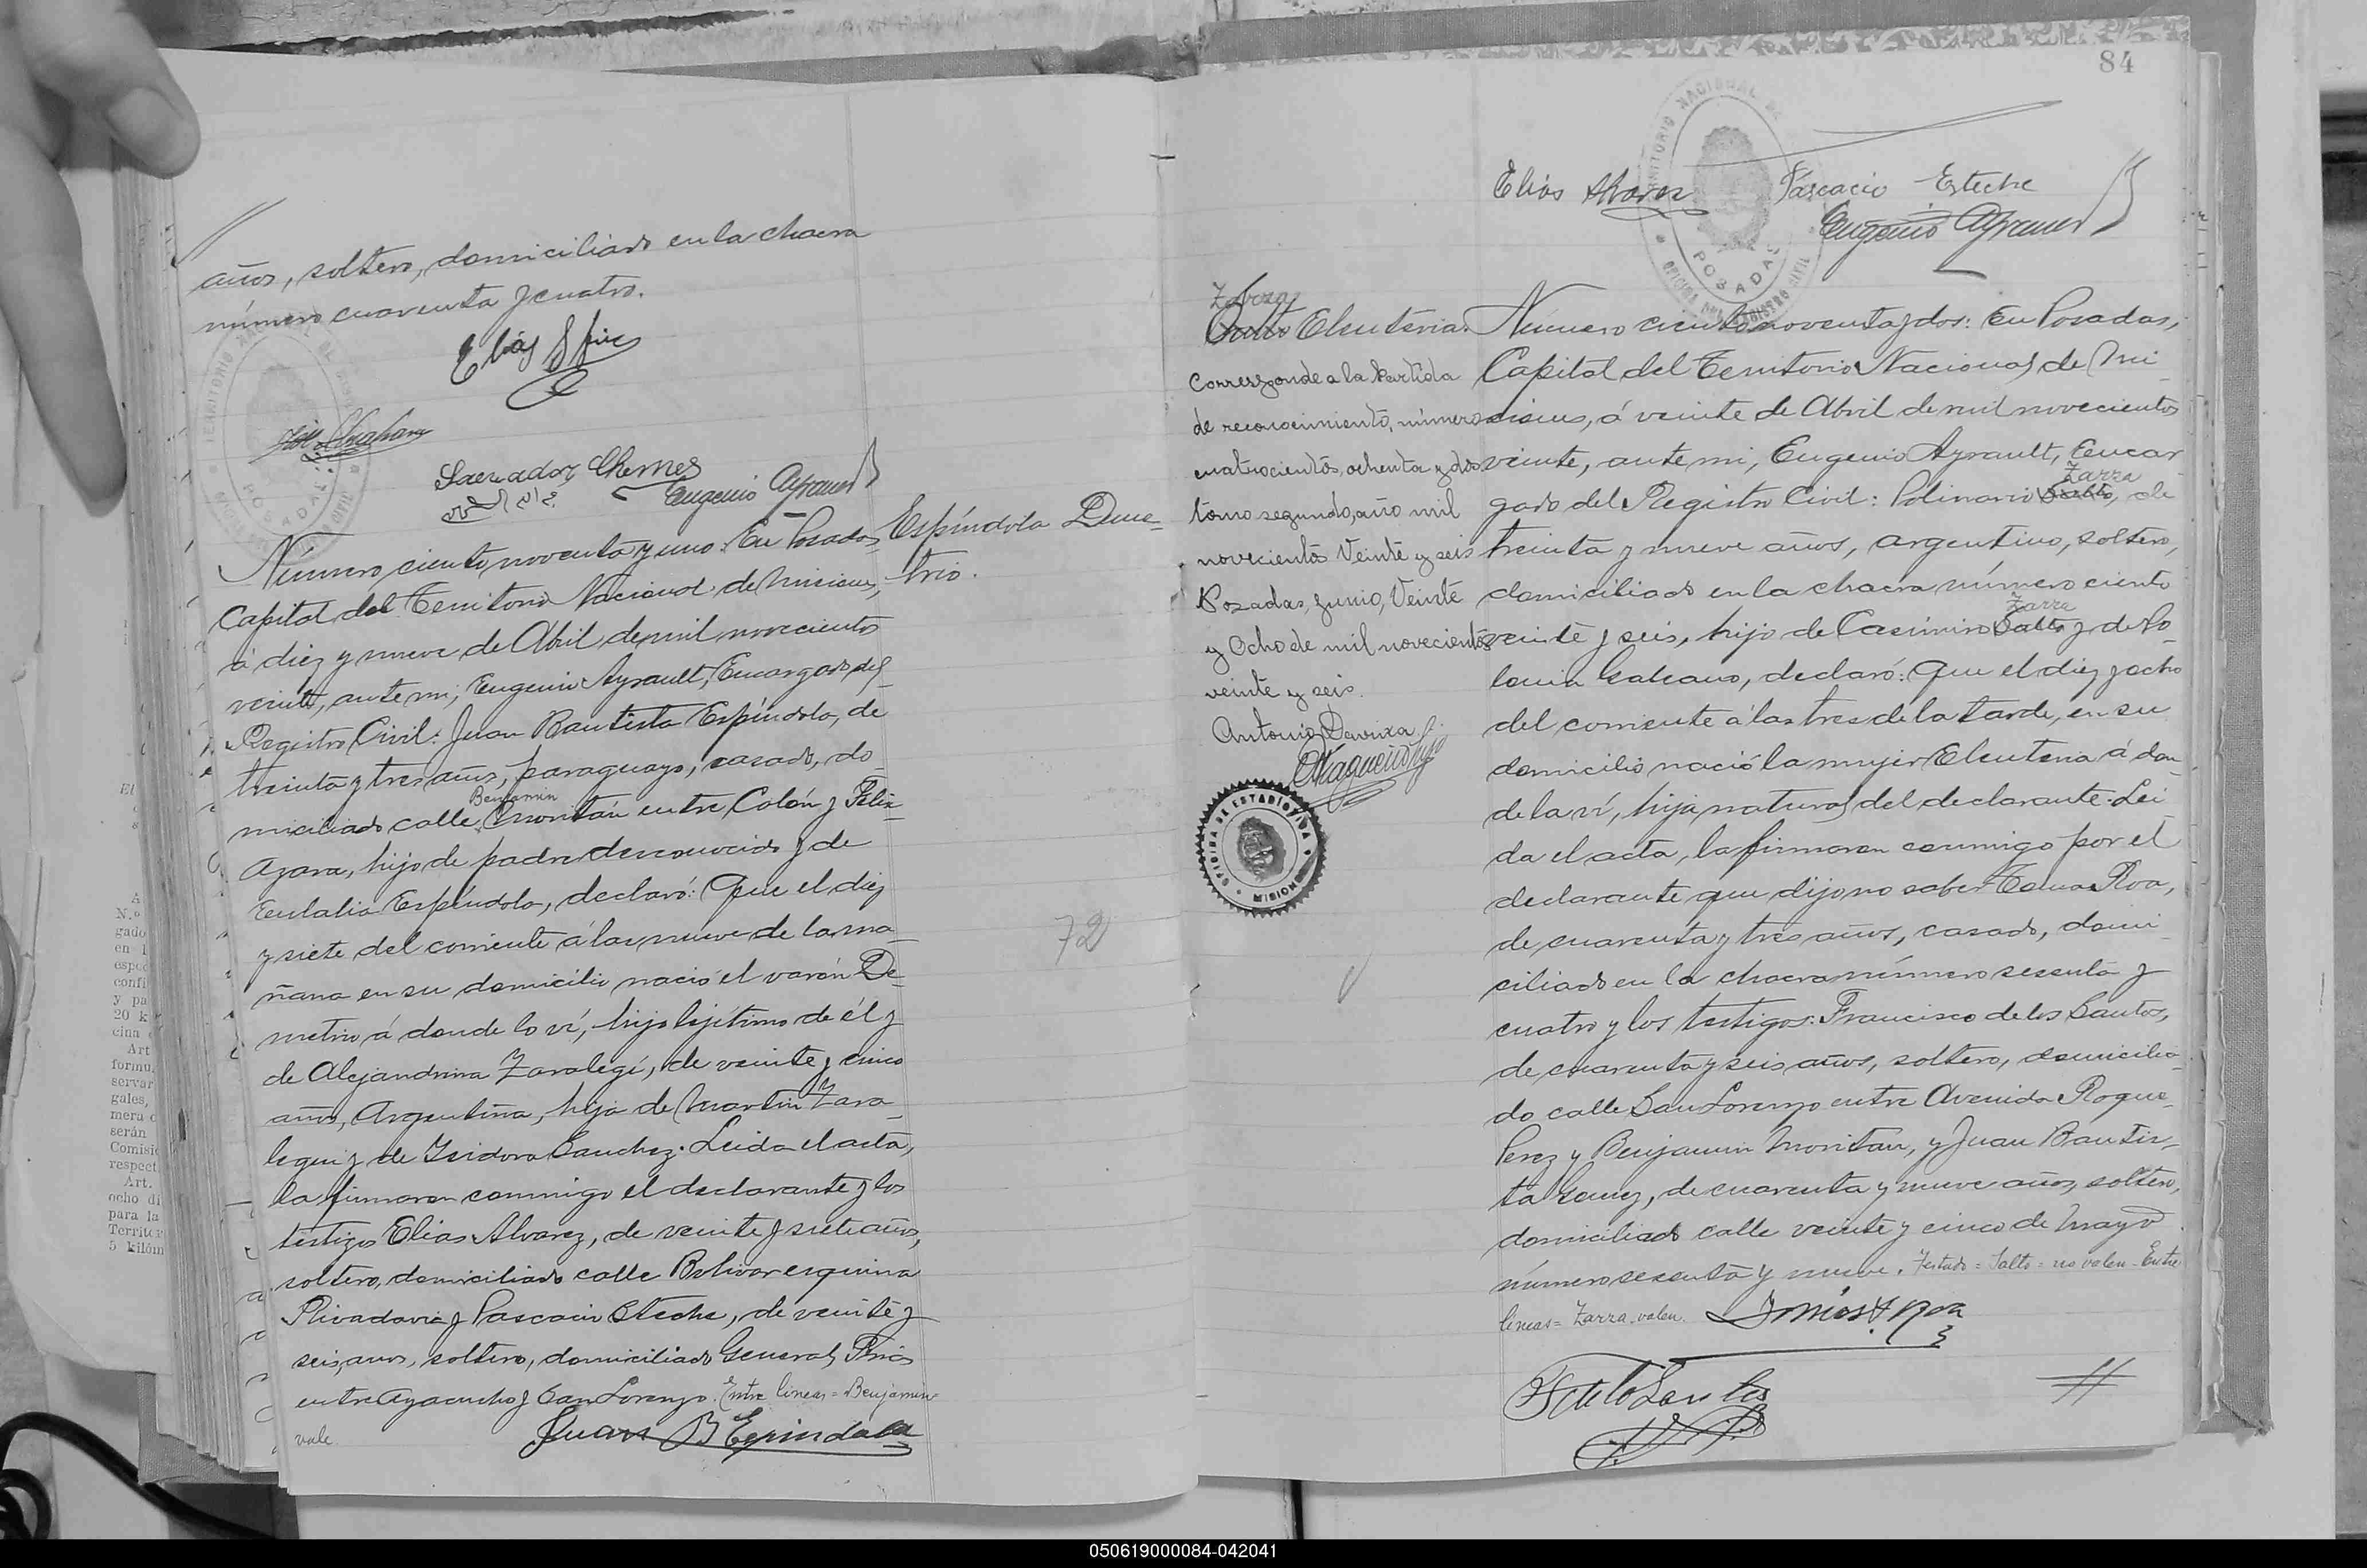 años, soltero, domiciliado en la chacra
número cuarenta y cuatro.
Salvador Chemes
Eugenio Ayrault
Espíndola Deme-
trio.
Número ciento noventa y uno: En Posadas
Capital del Territorio Nacional de Misiones,
á diez y nueve de Abril de mil novecientos
veinte, ante mi, Eugenio Ayrault, Encargado del
Registro Civil: Juan Bautista Espíndola, de
treinta y tres años, paraguayo, casado, do-
Benjamin
miciliado calle Moritán entre Colón y Felix
Azara, hijo de padre desconocido y de
Eulalia Espíndola, declaró: Que el diez
y siete del corriente á las nueve de la ma-
ñana en su domicilio nació el varón De-
metrio á donde lo ví, hijo lejítimo de él y
de Alejandrina Zaralegí, de veinte y cinco
años, Argentina, hija de Martin Zara-
legui y de Isidora Sanchez. Leida el acta,
la firmaron conmigo el declarante y los
testigos Elías Alvarez, de veinte y siete años,
soltero, domiciliado calle Bolivar esquina
Rivadavia y Pascacio Esteche, de veinte y
seis años, soltero, domiciliado General Paz
entre Ayacucho y San Lorenzo. Entre lineas = Benjamin =
vale.
Juan B Espindola
72
84
TERRITORIO NACIONAL DE
POSADAS
OFICINA DEL REGISTRO CIVIL
Elías Alvarez Pascacio Esteche
Eugenio Ayrault
Zarza
Salto Eleuteria.
Corresponde a la partida
de reconocimiento, número
cuatrocientos, ochenta y dos
tomo segundo, año mil
novecientos Veinte y seis
Posadas, Junio, Veinte
y Ocho de mil novecientos
veinte y seis.
OFICINA DE ESTADISTICA
MISIONES
Número ciento noventa y dos: En Posadas,
Capital del Territorio Nacional de Mi-
siones, á veinte de Abril de mil novecientos
veinte, ante mi, Eugenio Ayrault, Encar-
Zarza
gado del Registro Civil: Polinario Salto, de
treinta y nueve años, argentino, soltero,
domiciliado en la chacra número ciento
Zarza
veinte y seis, hijo de Casimiro Salto y de Po-
lonia Galeano, declaró: Que el diez y ocho
del corriente á las tres de la tarde, en su
domicilio nació la mujer Eleuteria á don-
de la ví, hija natural del declarante. Lei-
da el acta, la firmaron conmigo por el
declarante que dijo no saber Tomas Roa,
de cuarenta y tres años, casado, domi-
ciliado en la chacra número sesenta y
cuatro y los testigos: Francisco de los Santos,
de cuarenta y seis años, soltero, domicilia-
do calle San Lorenzo entre Avenida Roque
Perez y Benjamin Moritan, y Juan Bautis-
ta Gomez, de cuarenta y nueve años, soltero,
domiciliado calle veinte y cinco de Mayo
número sesenta y nueve. Testado = Salto = no valen - Entre
lineas = Zarza. valen.
050619000084-042041